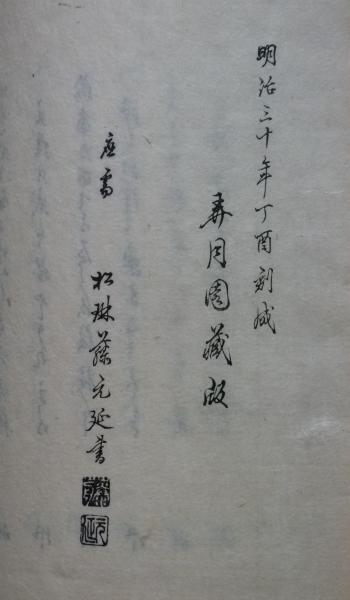 明治三十年丁酉刻成
弄月園藏版
應需
松琳藤元延書